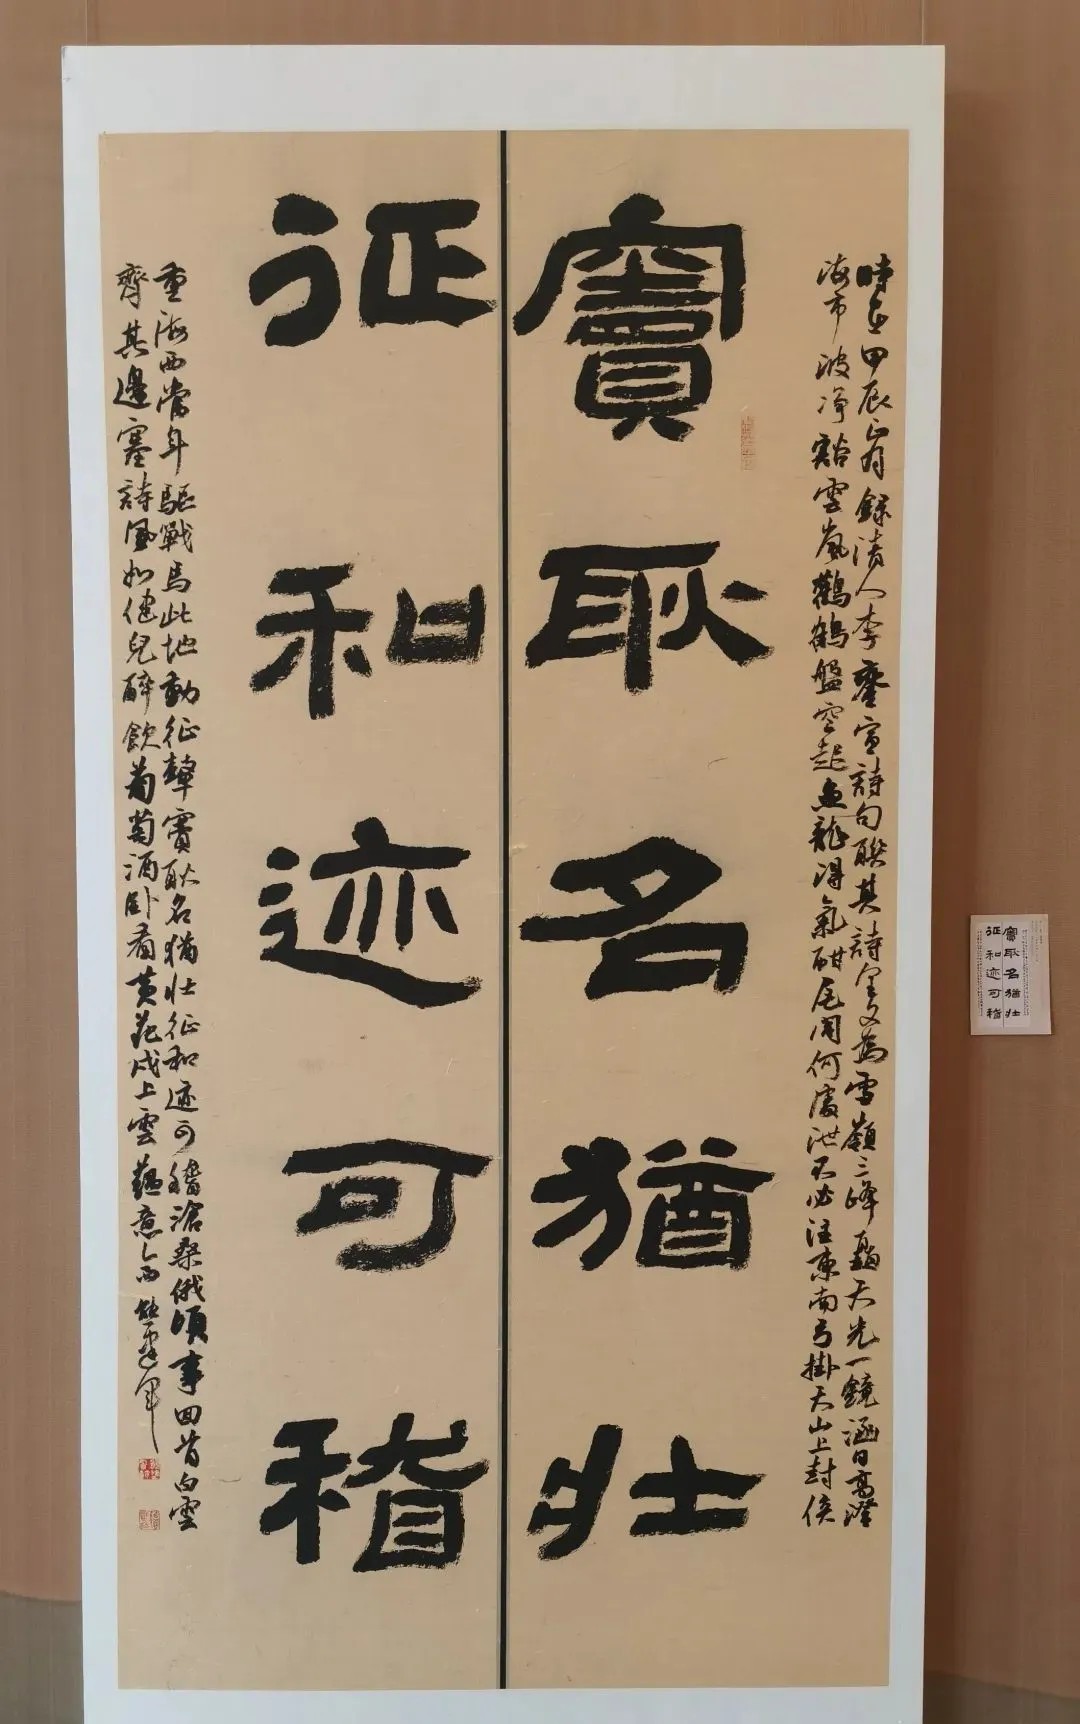 竇耿名猶壯
征和迹可稽
時在甲辰 錄清人李鑾宣詩句聯其詩 為雪嶺三峰矗天光一鏡涵日高澄
海市波淨豁雲嵐鸛鶴盤空起魚龍得氣酣尾閭何處泄不必注東南弓掛天山上封侯
重海西當年驅戰馬此地動征鼙竇耿名猶壯征和迹可稽滄桑俄頃事回首白雲
齊其邊塞詩風如健兒醉飲葡萄酒臥看黃花戍上雲 意